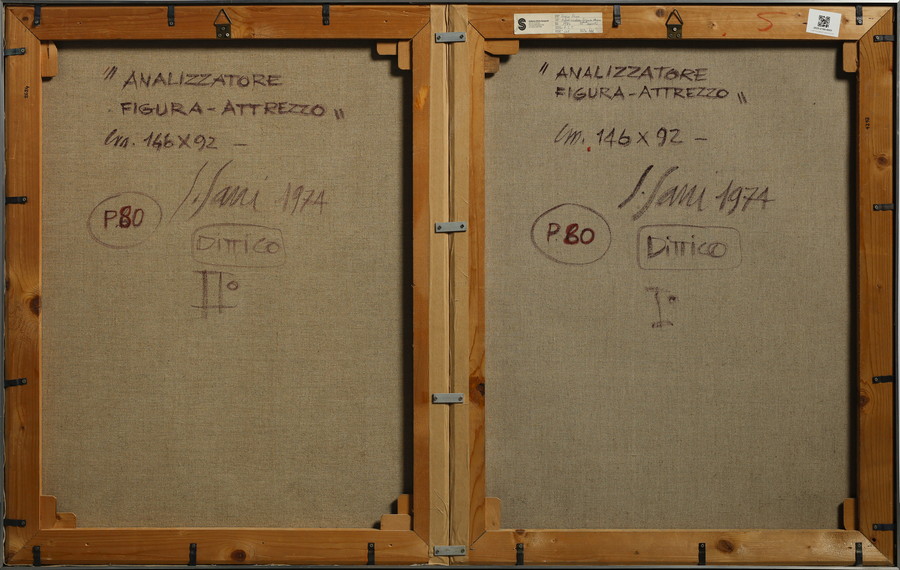 " ANALIZZATORE
FIGURA - ATTREZZO "
Cm. 146 X 92 —
S. Sarri 1974
P.80
DITTICO
II°
" ANALIZZATORE
FIGURA - ATTREZZO "
Cm. 146 X 92 —
S. Sarri 1974
P.80
DITTICO
I°
S
S